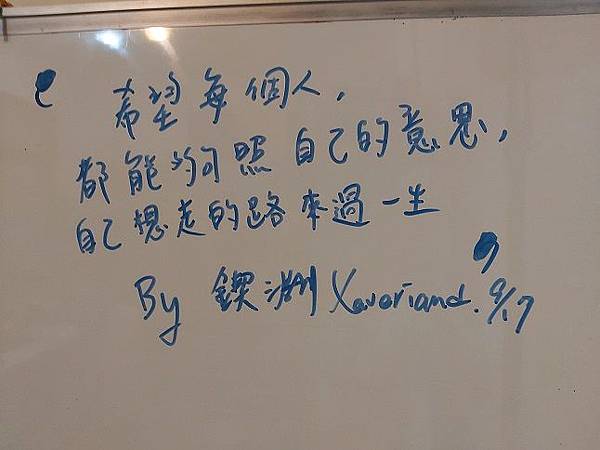 希望每個人,
都能夠照自己的意思,
自己想走的路來過一生
By 鍥洲 Xaveriand. 9/17